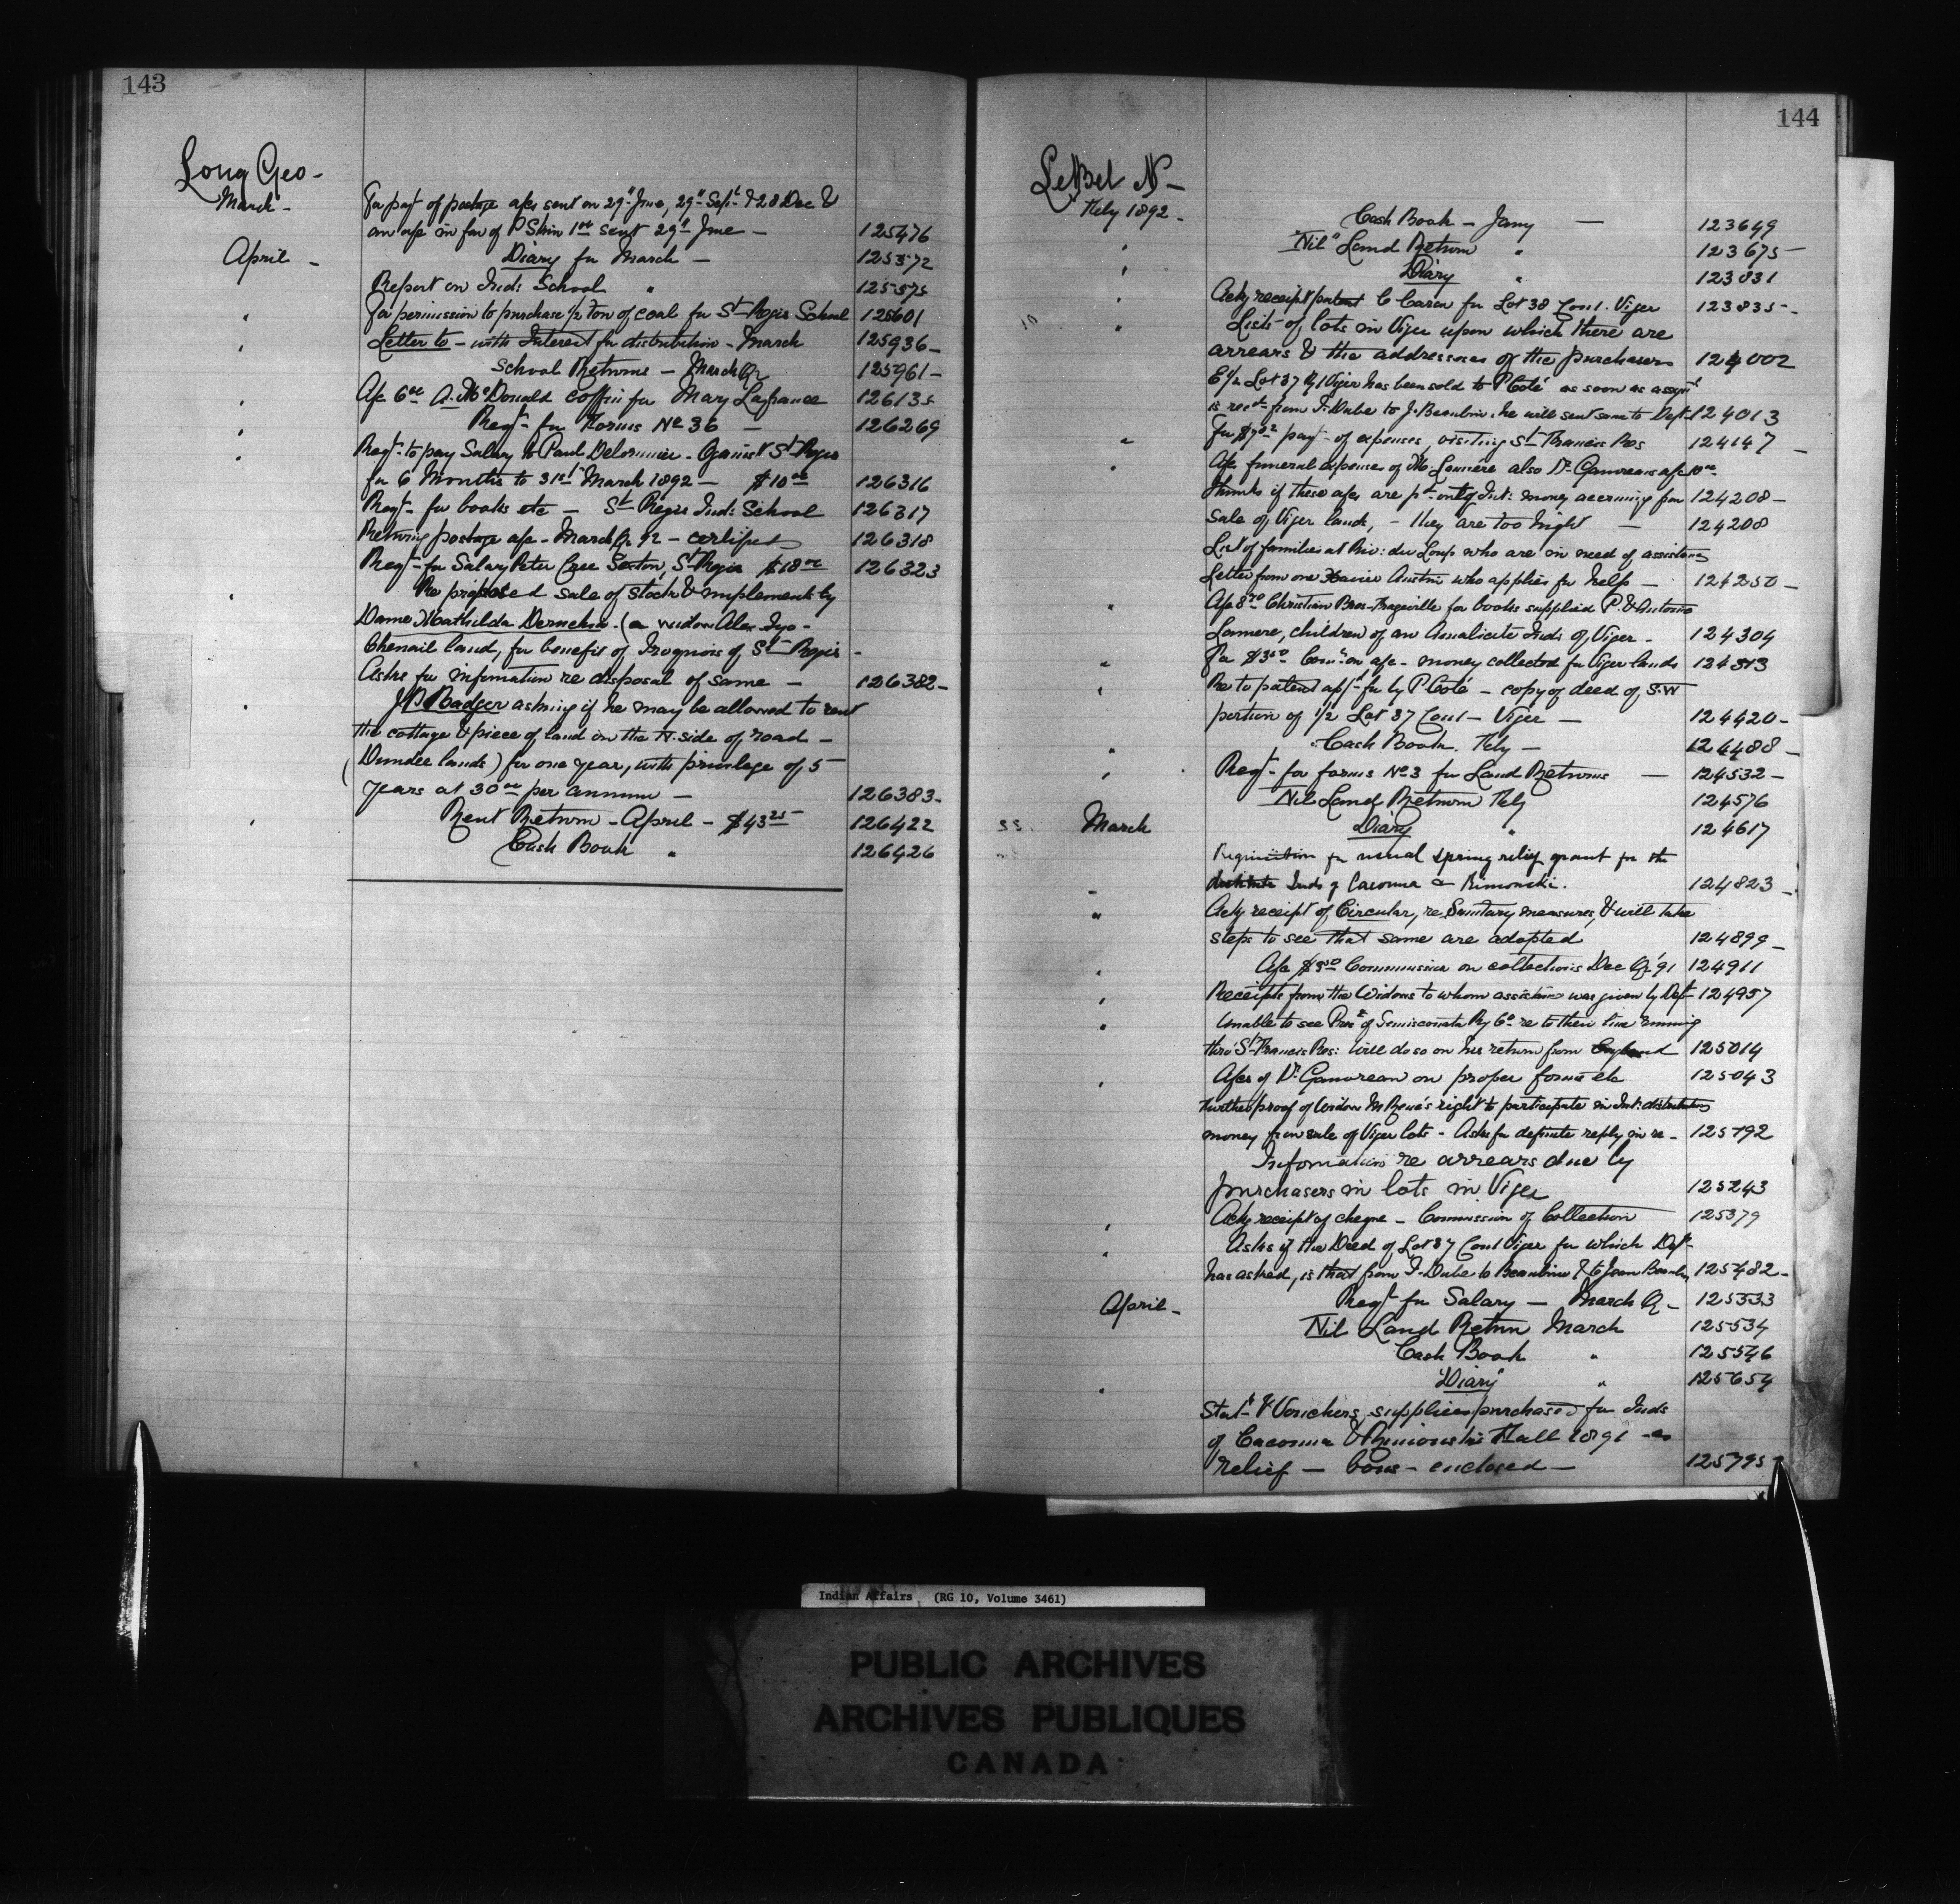 143
Long Geo -
March -
For payt of postage a/cs sent on 29th June, 29th Sept & 28 Dec &
an a/c in fav of P Skin 1.00 sent 29th June - 125476
April -
Diary for March - 125572
Report on Ind: School " 125575
For permission to purchase 1/2 Ton of coal for St Regis School 125601
Letter to - with Interest for distribution - March 125936 -
School Returns - March Qr 125961 -
A/c 6.00 A. McDonald coffin for Mary Lafrance 126135
Reqt - for Forms No 36 - 126269
Reqt - to pay Salary to Paul Delormier - Organist St Regis
for 6 Months to 31st March 1892 - $10.00 126316
Reqt - for books etc - St Regis Ind: School 126317
Returng postage a/c - March Qr 92 - certified 126318
Reqt - for Salary Peter Sexton, St Regis $18.00 126323
Re proposed sale of stock & implements by
Dame Mathilda (a widow Alex
Chenail land, for benefit of Iroquois of St Regis -
Asks for information re disposal of same - 126382 -
J.B. Badger asking if he may be allowed to rent
the cottage & piece of land on the N. side of road -
(Dundee lands) for one year, with privilege of 5
years at 30.00 per annum - 126383 -
Rent Return - April - $43.25 126422
Cash Book " 126426
144
LeBel N -
Feby 1892 -
Cash Book - Jany - 123649
"Nil" Land Return " 123675 -
Diary " 123831
Ackg receipt patent C Caron for Lot 38 Con 1. Viger 123835 -
Lists of lots in Viger upon which there are
arrears & the addresses of the purchasers 124002
E 1/2 Lot 37 R1 Viger has been sold to P Coté as soon as assignt
is recd from F. Dube to J. Beaulieu. he will sent same to Dept 124013
For $7.02 payt - of expenses, visiting St Francis Res 124147 -
A/c funeral expenses of M. Lanière also Dr Gauvreau's a/c 10.00
thinks if these a/cs are pd - only Int: money accruing from 124208 -
sale of Viger lands, - they are too hight - 124208
List of families at Riv: du Loup who are in need of assistance
Letter from one Xavier Austin who applies for help - 124250 -
A/c 8.70 Christian Bros - for books supplied P. & Antoine
Lamere, children of an Amalicite Ind: of Viger - 124304
For $3.50 Comn on a/c - money collected for Viger lands 124313
Re to patent appd for by P. Coté - copy of deed of S.W
portion of 1/2 Lot 37 Con 1 - Viger - 124420 -
Cash Book. Feby - 124488 -
Reqt - for forms No 3 for Land Returns - 124532 -
Nil Land Return Feby 124576
March
Diary " 124617
Requisition for usual Spring relief grant for the
destitute Inds of Cacouna & Rimouski. 124823 -
Ackg receipt of Circular, re Sanitary measures, & will take
steps to see that same are adopted 124899 -
A/c $3.50 Commission on collections Dec Qr '91 124911
Receipts from the Widows to whom assistance was given by Dept 124957
Unable to see Prest of Temiscouata Ry Co re to their line running
thro' St Francis Res: will do so on his return from England 125014
A/cs of Dr Gauvreau on proper forms etc 125043
Further proof of Widow M René's right to participate in Int: distribution
money from sale of Viger lots - Asks for definite reply in re - 125192
Information re arrears due by
purchasers in lots in Viger 125243
Ackg receipt of cheque - Commission of Collection 125379
Asks if the Deed of Lot 37 Con 1 Viger for which Dept
has asked, is that from F. Dube to Beaulieu & to Jean 125482 -
April -
Reqt for Salary - March Qr - 125533
Nil Land Return March 125534
Cash Book " 125546
"Diary" " 125654
Statt & Vouchers, supplies purchased for Inds
of Cacouna & Rimouski Fall 1891 - as
relief - bons - enclosed - 125795
Indian Affairs (RG 10, Volume 3461)
PUBLIC ARCHIVES
ARCHIVES PUBLIQUES
CANADA